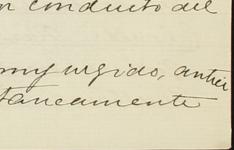 conducto del
muy urgido, antici
táneamente